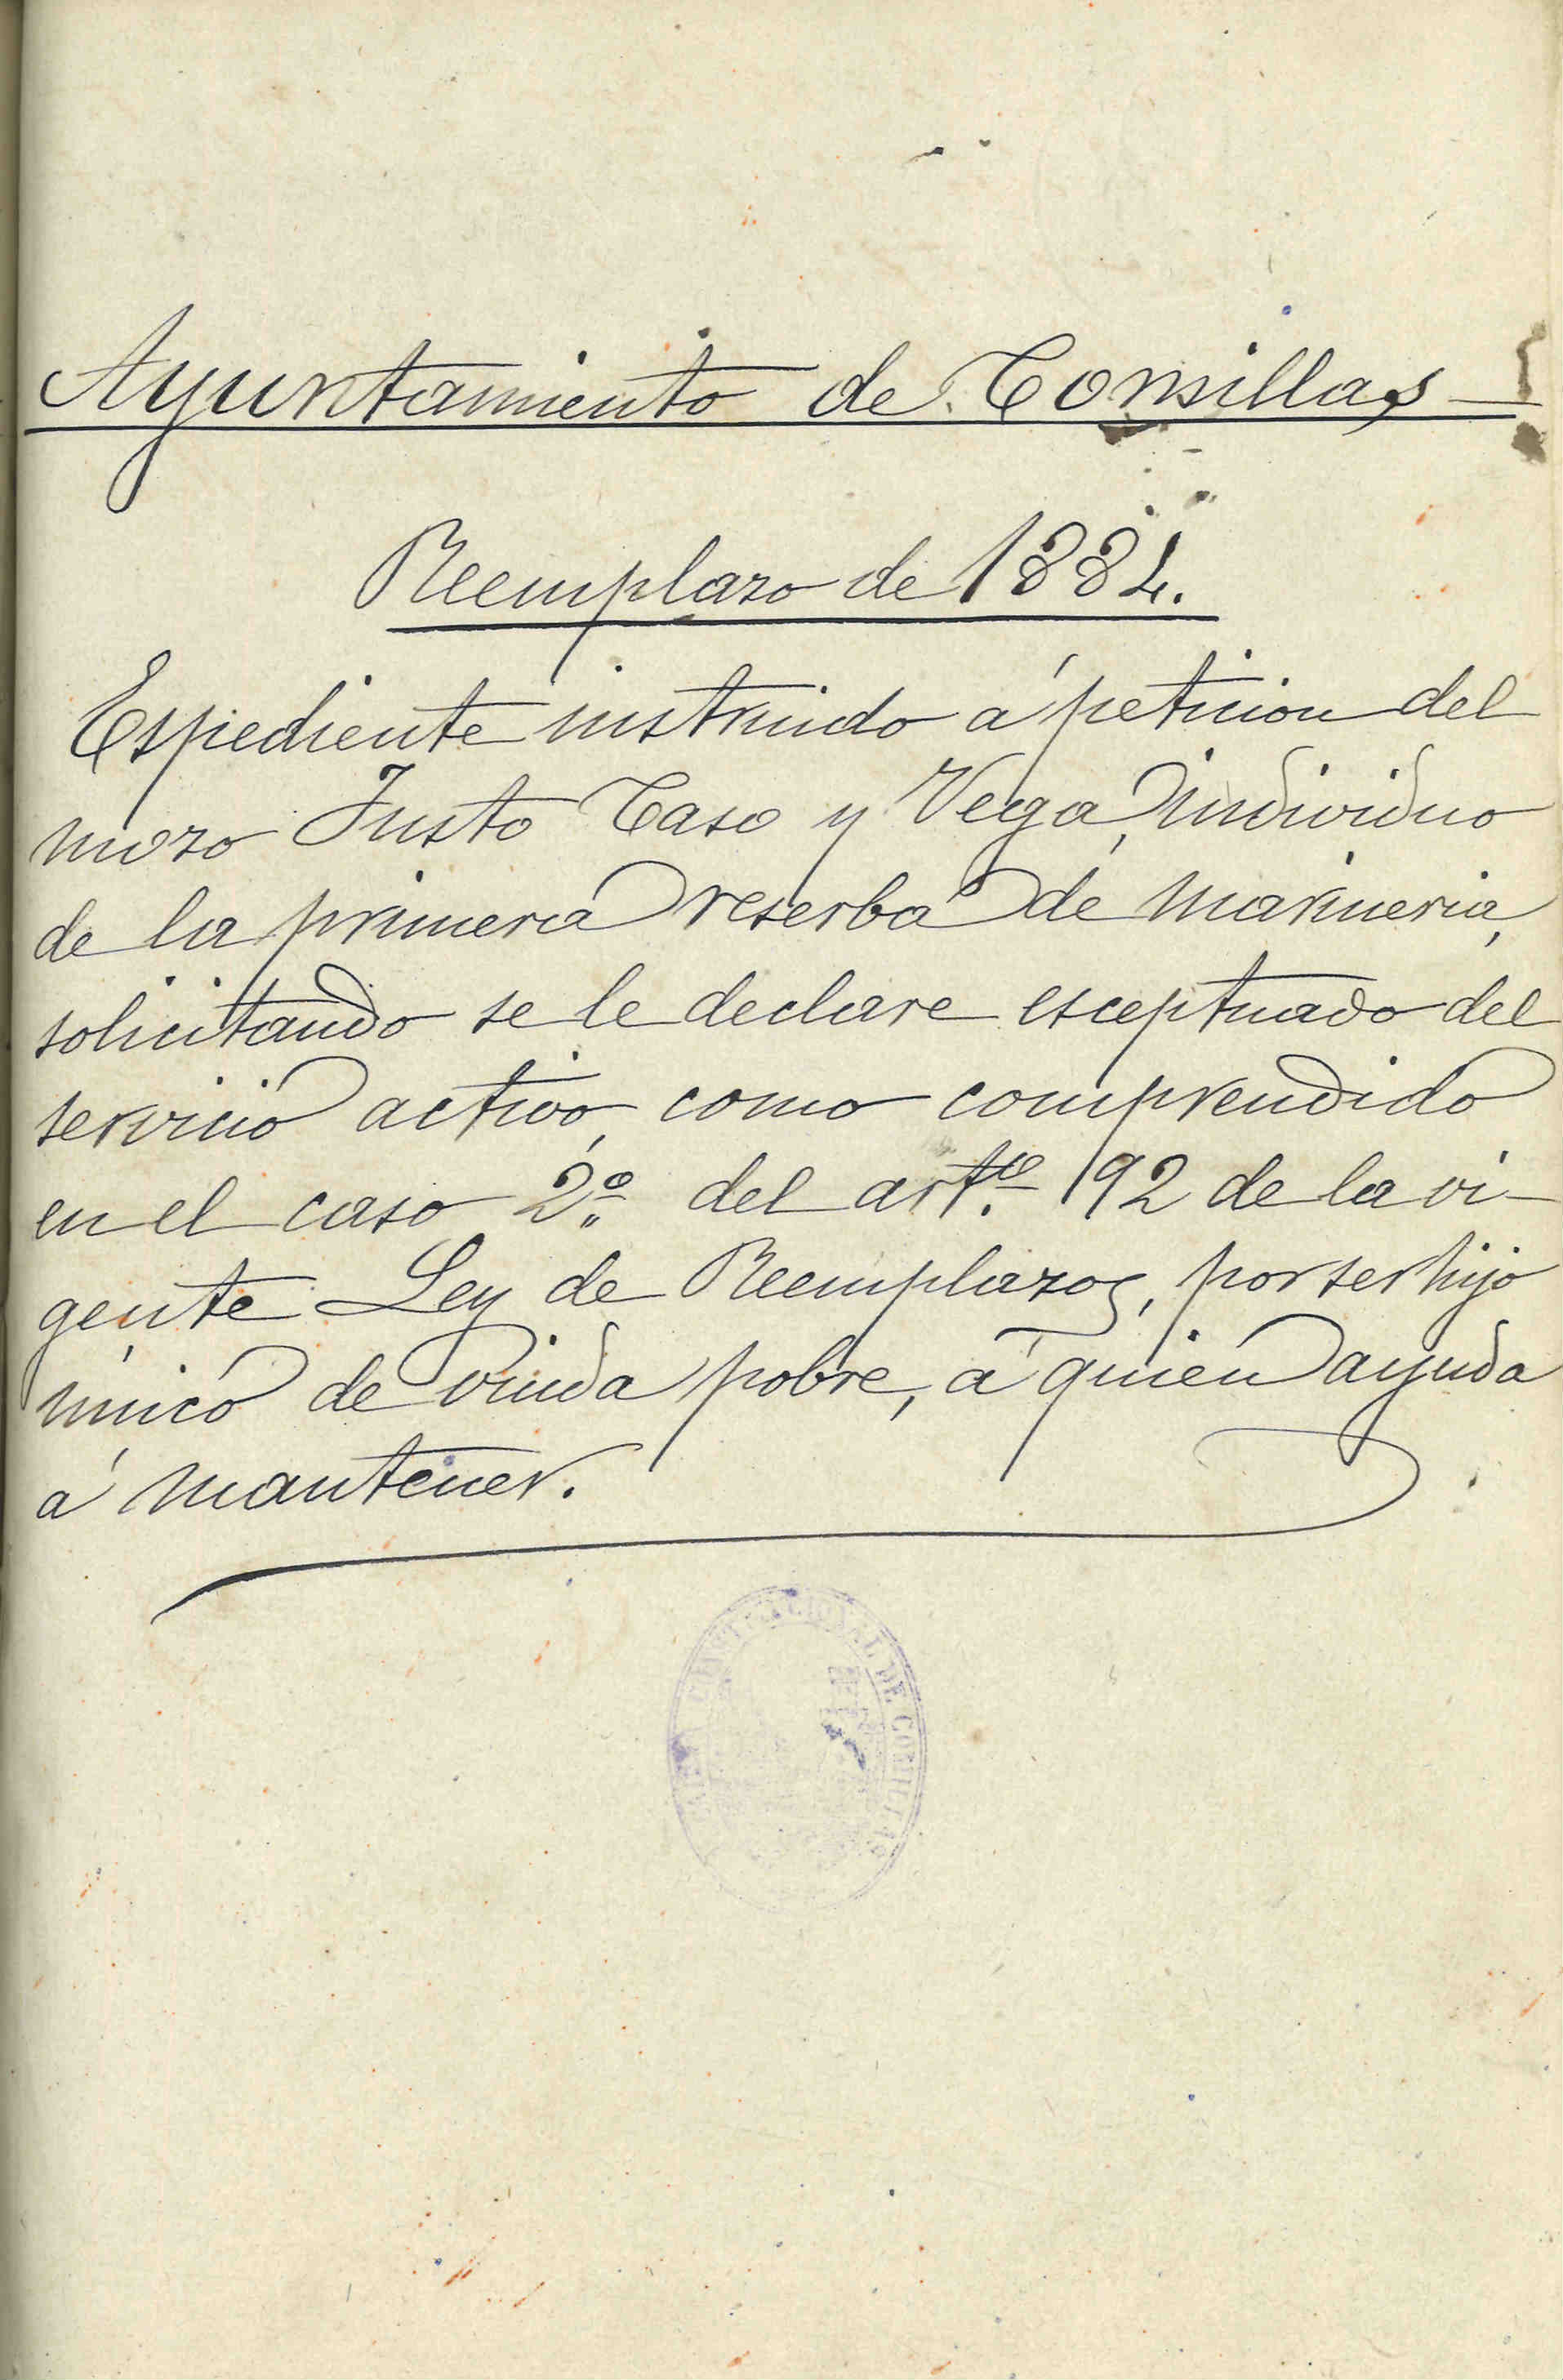 Ayuntamiento de Comillas
Reemplazo de 1884.
Espediente instruido á peticion del
mozo Justo Caso y Vega, individuo
de la primera reserba de marineria,
solicitando se le declare esceptuado del
servicio activo, como comprendido
en el caso 2.º del art.º 92 de la vi-
gente Ley de Reemplazos, por ser hijo
único de viuda pobre, á quien ayuda
á mantener.
CONSTITUCIONAL DE COMILLAS